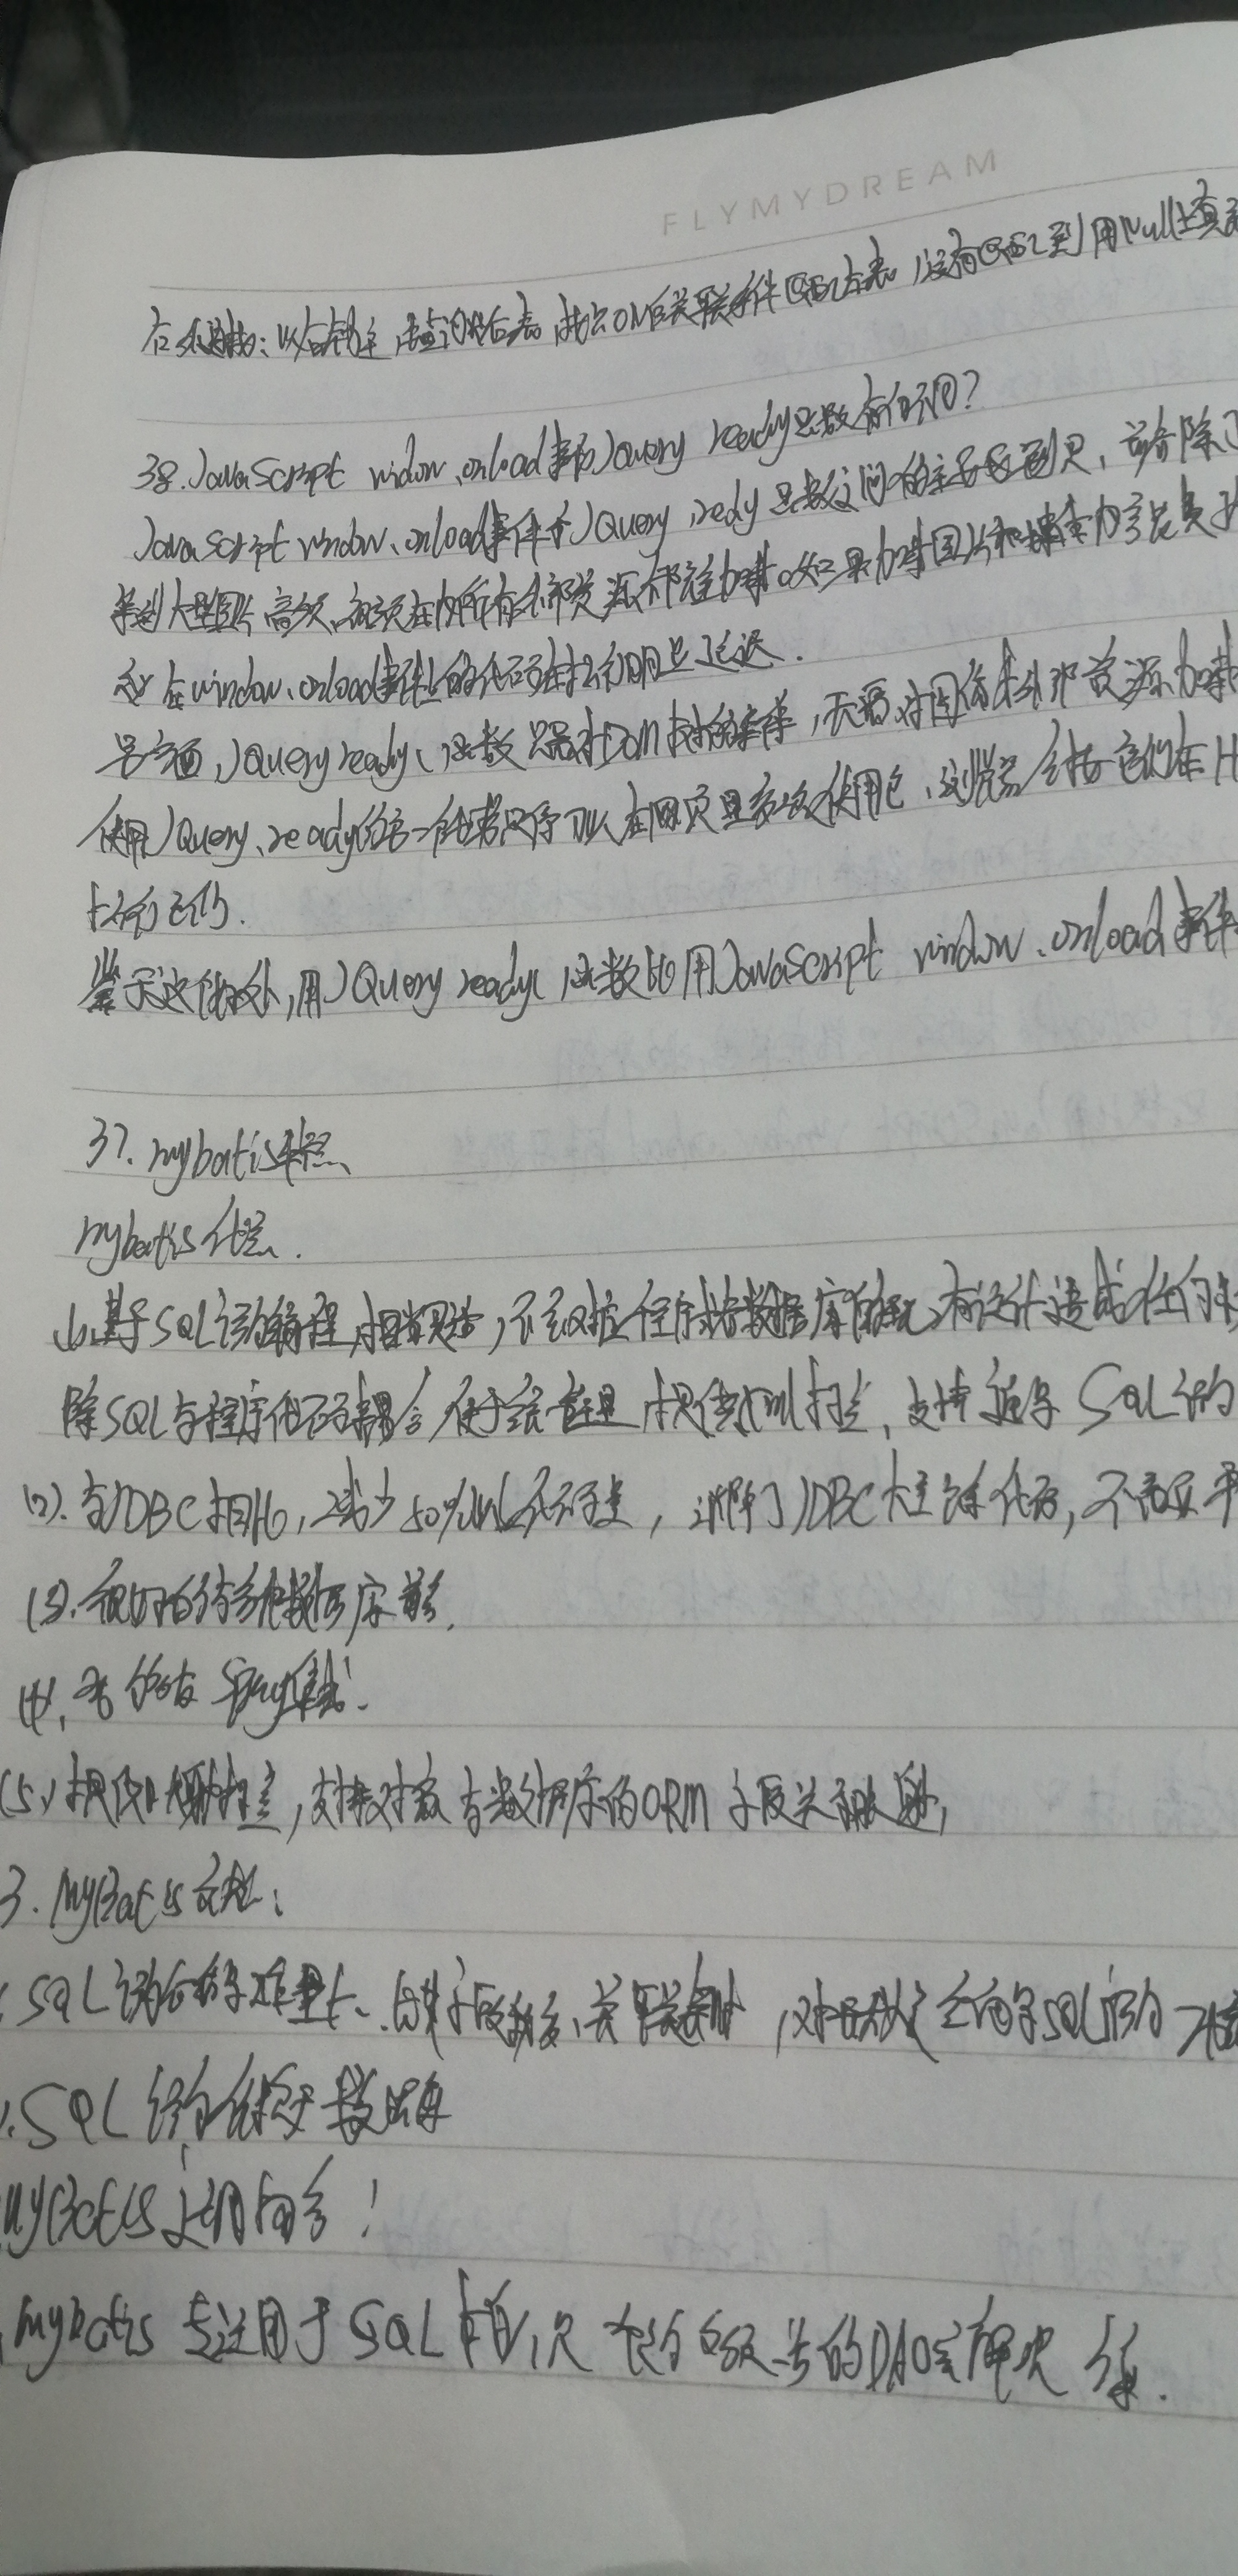 FLYMYDREAM
右外连接：以右为主，先查询出右表，找出ON后关联条件 左表，没有 到用Null填充
38.JavaScript window.onload事件和JQuery ready函数有何不同？
JavaScript window.onload事件和JQuery ready函数之间的主要区别是，前者除了
等到大型图片、音频、视频在内所有外部资源都全加载。如果加载图片和媒体内容花费
在window.onload事件上的代码在执行明显延迟.
另方面,JQuery ready()函数只需对DOM树的等待，无需对图像或外部资源加载
使用JQuery.ready()的另一个优势是你可以在网页里多次使用它，浏览器会按它们在H
上行它们.
鉴于这个好处,用JQuery ready()函数比用JavaScript window.onload事件
37.mybatis
mybatis优点.
(1).基于SQL语句编程,相当灵活,不会对应用程序或者数据库的现有设计造成任何
除SQL与程序代码耦合,便于统一管理,提供xml标签,支持编写SQL的
(2).与JDBC相比,减少50%以上代码量,消除了JDBC大量冗余代码,不需要手
(3).很好的与各种数据库兼容.
(4).能够与Spring集成.
(5).提供映射标签,支持对象与数据库的ORM字段关系映射,
3.MyBatis缺点:
SQL语句的编写工作量大、尤其字段多、关联表多时,对开发人员编写SQL语句
.SQL语句依赖于数据库
MyBatis适用场合!
mybatis专注于SQL本身,是一个足够灵活的DAO层解决方案.